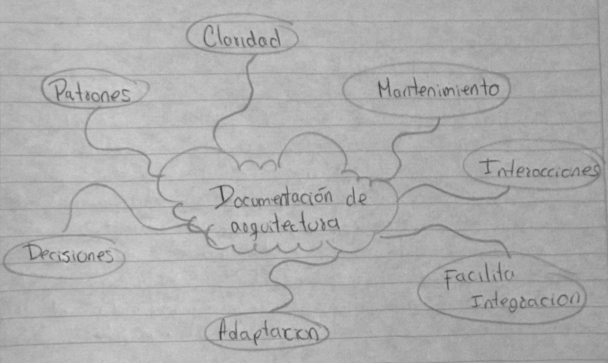 Claridad
Patrones
Mantenimiento
Interacciones
Documentación de
arquitectura
Decisiones
Facilita
Integracion
Adaptacion